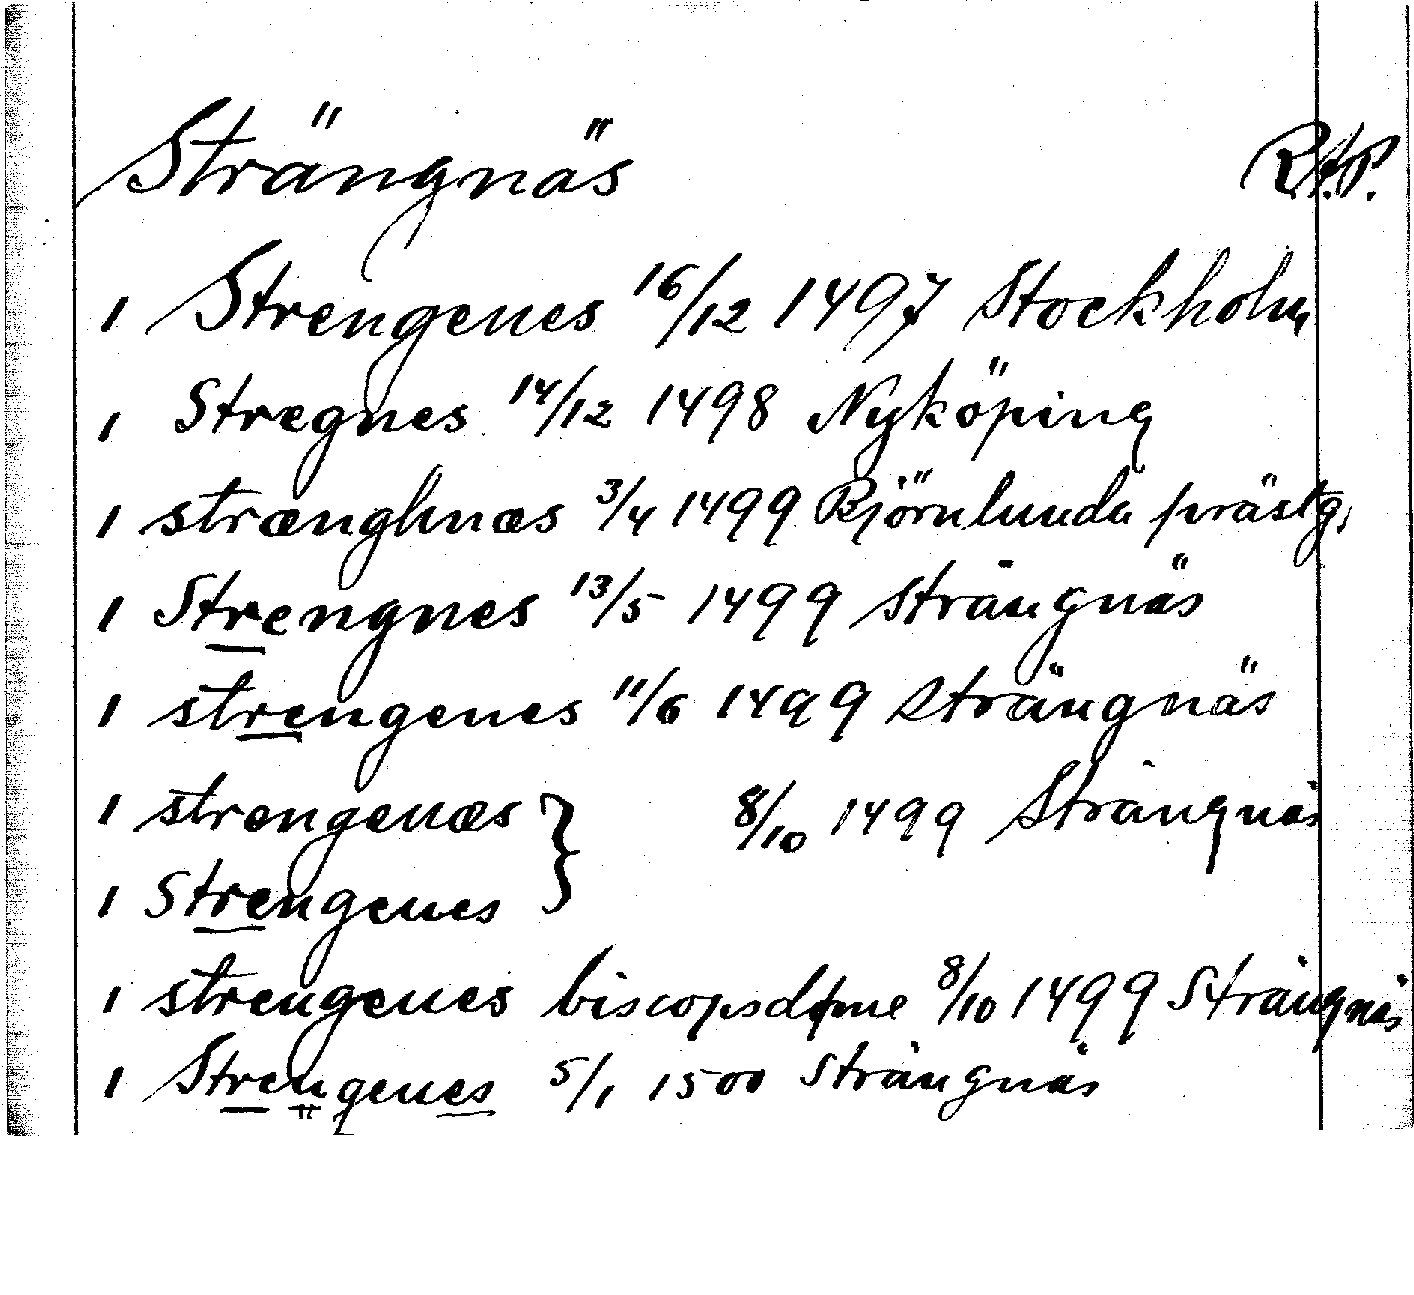 Strängnäs R.A.P.
1 Strengenes 16/12 1497 Stockholm
1 Stregnes 14/12 1498 Nyköping
1 strænghnæs 3/4 1499 Björnlunda prästg.
1 Strengnes 13/5 1499 Strängnäs
1 strengenes 11/6 1499 Strängnäs
1 strengenæs } 8/10 1499 Strängnäs
1 Strengenes
1 strengenes biscopsdøme 8/10 1499 Strängnäs
1 Strengenes 5/1 1500 Strängnäs